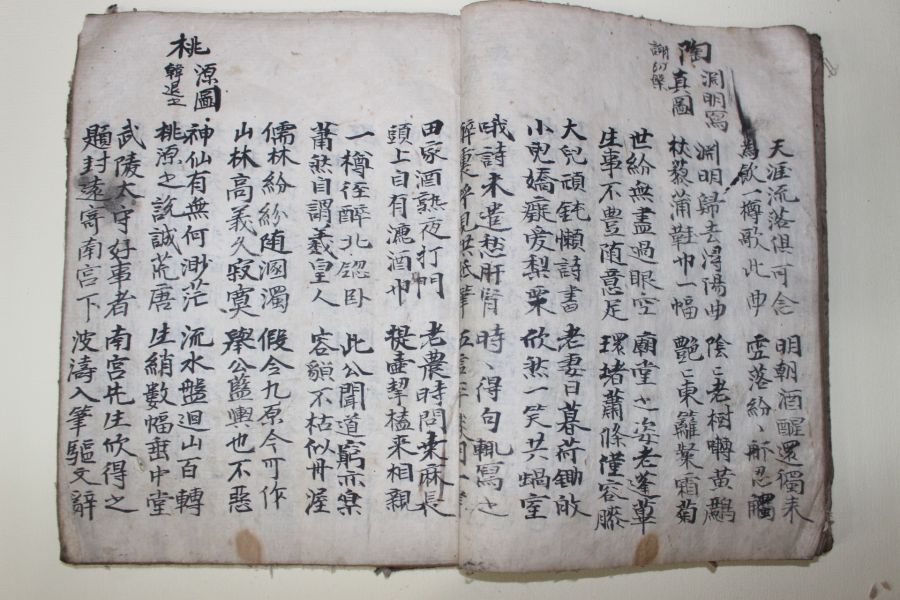 天涯流落俱可念 明朝酒醒還獨來
為飲一樽歌此曲 雪落紛〻那忍觸
陶淵明寫真圖
謝幼槃
淵明歸去潯陽曲 陰〻老樹囀黃鸝
杖藜蒲鞋巾一幅 艷〻東籬葉霜菊
世紛無盡過眼空 廟堂之姿老蓬蓽
生事不豊随意足 環堵蕭條僅容膝
大兒頑鈍懶詩書 老妻日暮荷鋤皈
小兒嬌癡愛梨栗 欣然一笑共蝸室
哦詩未遣愁肝腎 時〻得句輒寫之
醉裏呼兒供紙筆 五言
田家酒熟夜打門 老農時問桑麻長
頭上自有漉酒巾 提壷挈榼來相親
一樽徑醉北窓臥 此公聞道窮亦樂
蕭然自謂羲皇人 容貌不枯似丹渥
儒林紛紛随溷濁 假令九原今可作
山林高義久寂寞 舉公籃輿也不惡
桃源圖
韓退之
神仙有無何渺茫 流水盤迴山百轉
桃源之說誠荒唐 生綃數幅垂中堂
武陵太守好事者 南宮先生欣得之
題封遠寄南宮下 波濤入筆驅文辭